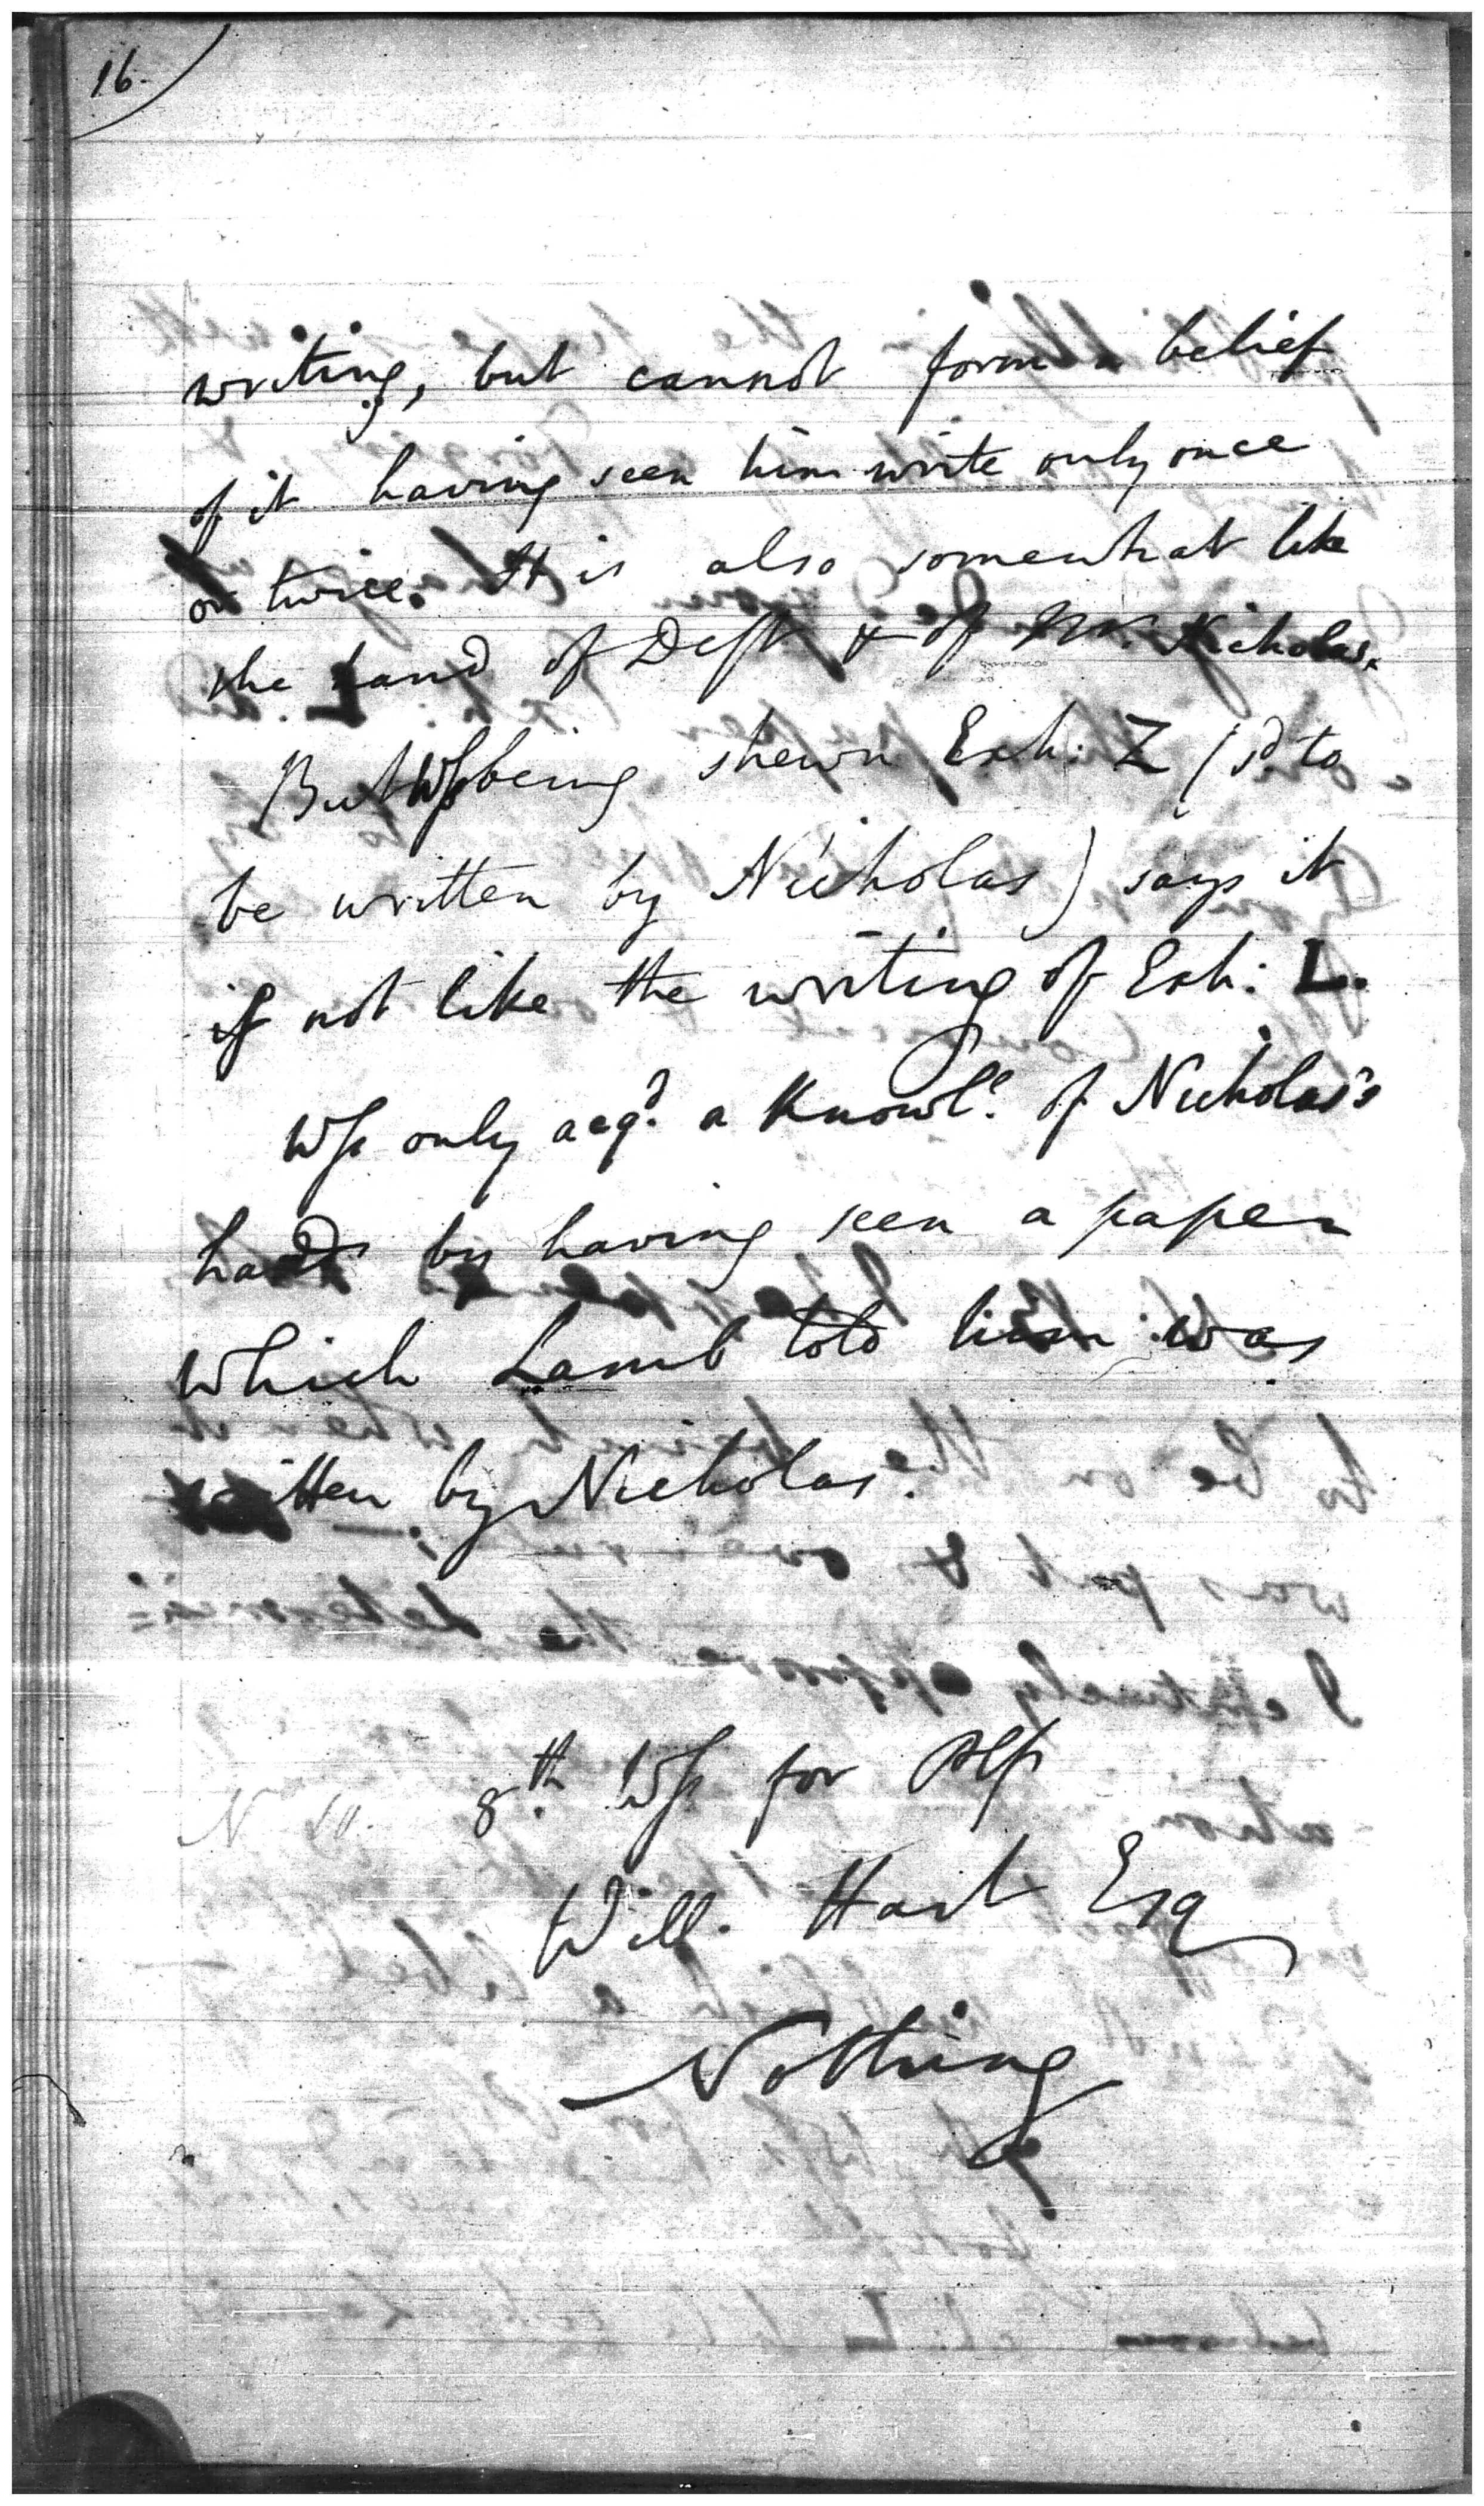 16.
writing, but cannot form a belief
of it having seen him write only once
or twice. It is also somewhat like
the hand of Deft & of Mr. Nicholas.
But Ws being shewn Exh: Z (sd to
be written by Nicholas) says it
is not like the writing of Exh: L.
Ws only acqd. a Knowle. of Nicholas's
hand by having seen a paper
which Lamb told him was
written by Nicholas.
8th. Ws for
Will. Hart Esq
Nothing